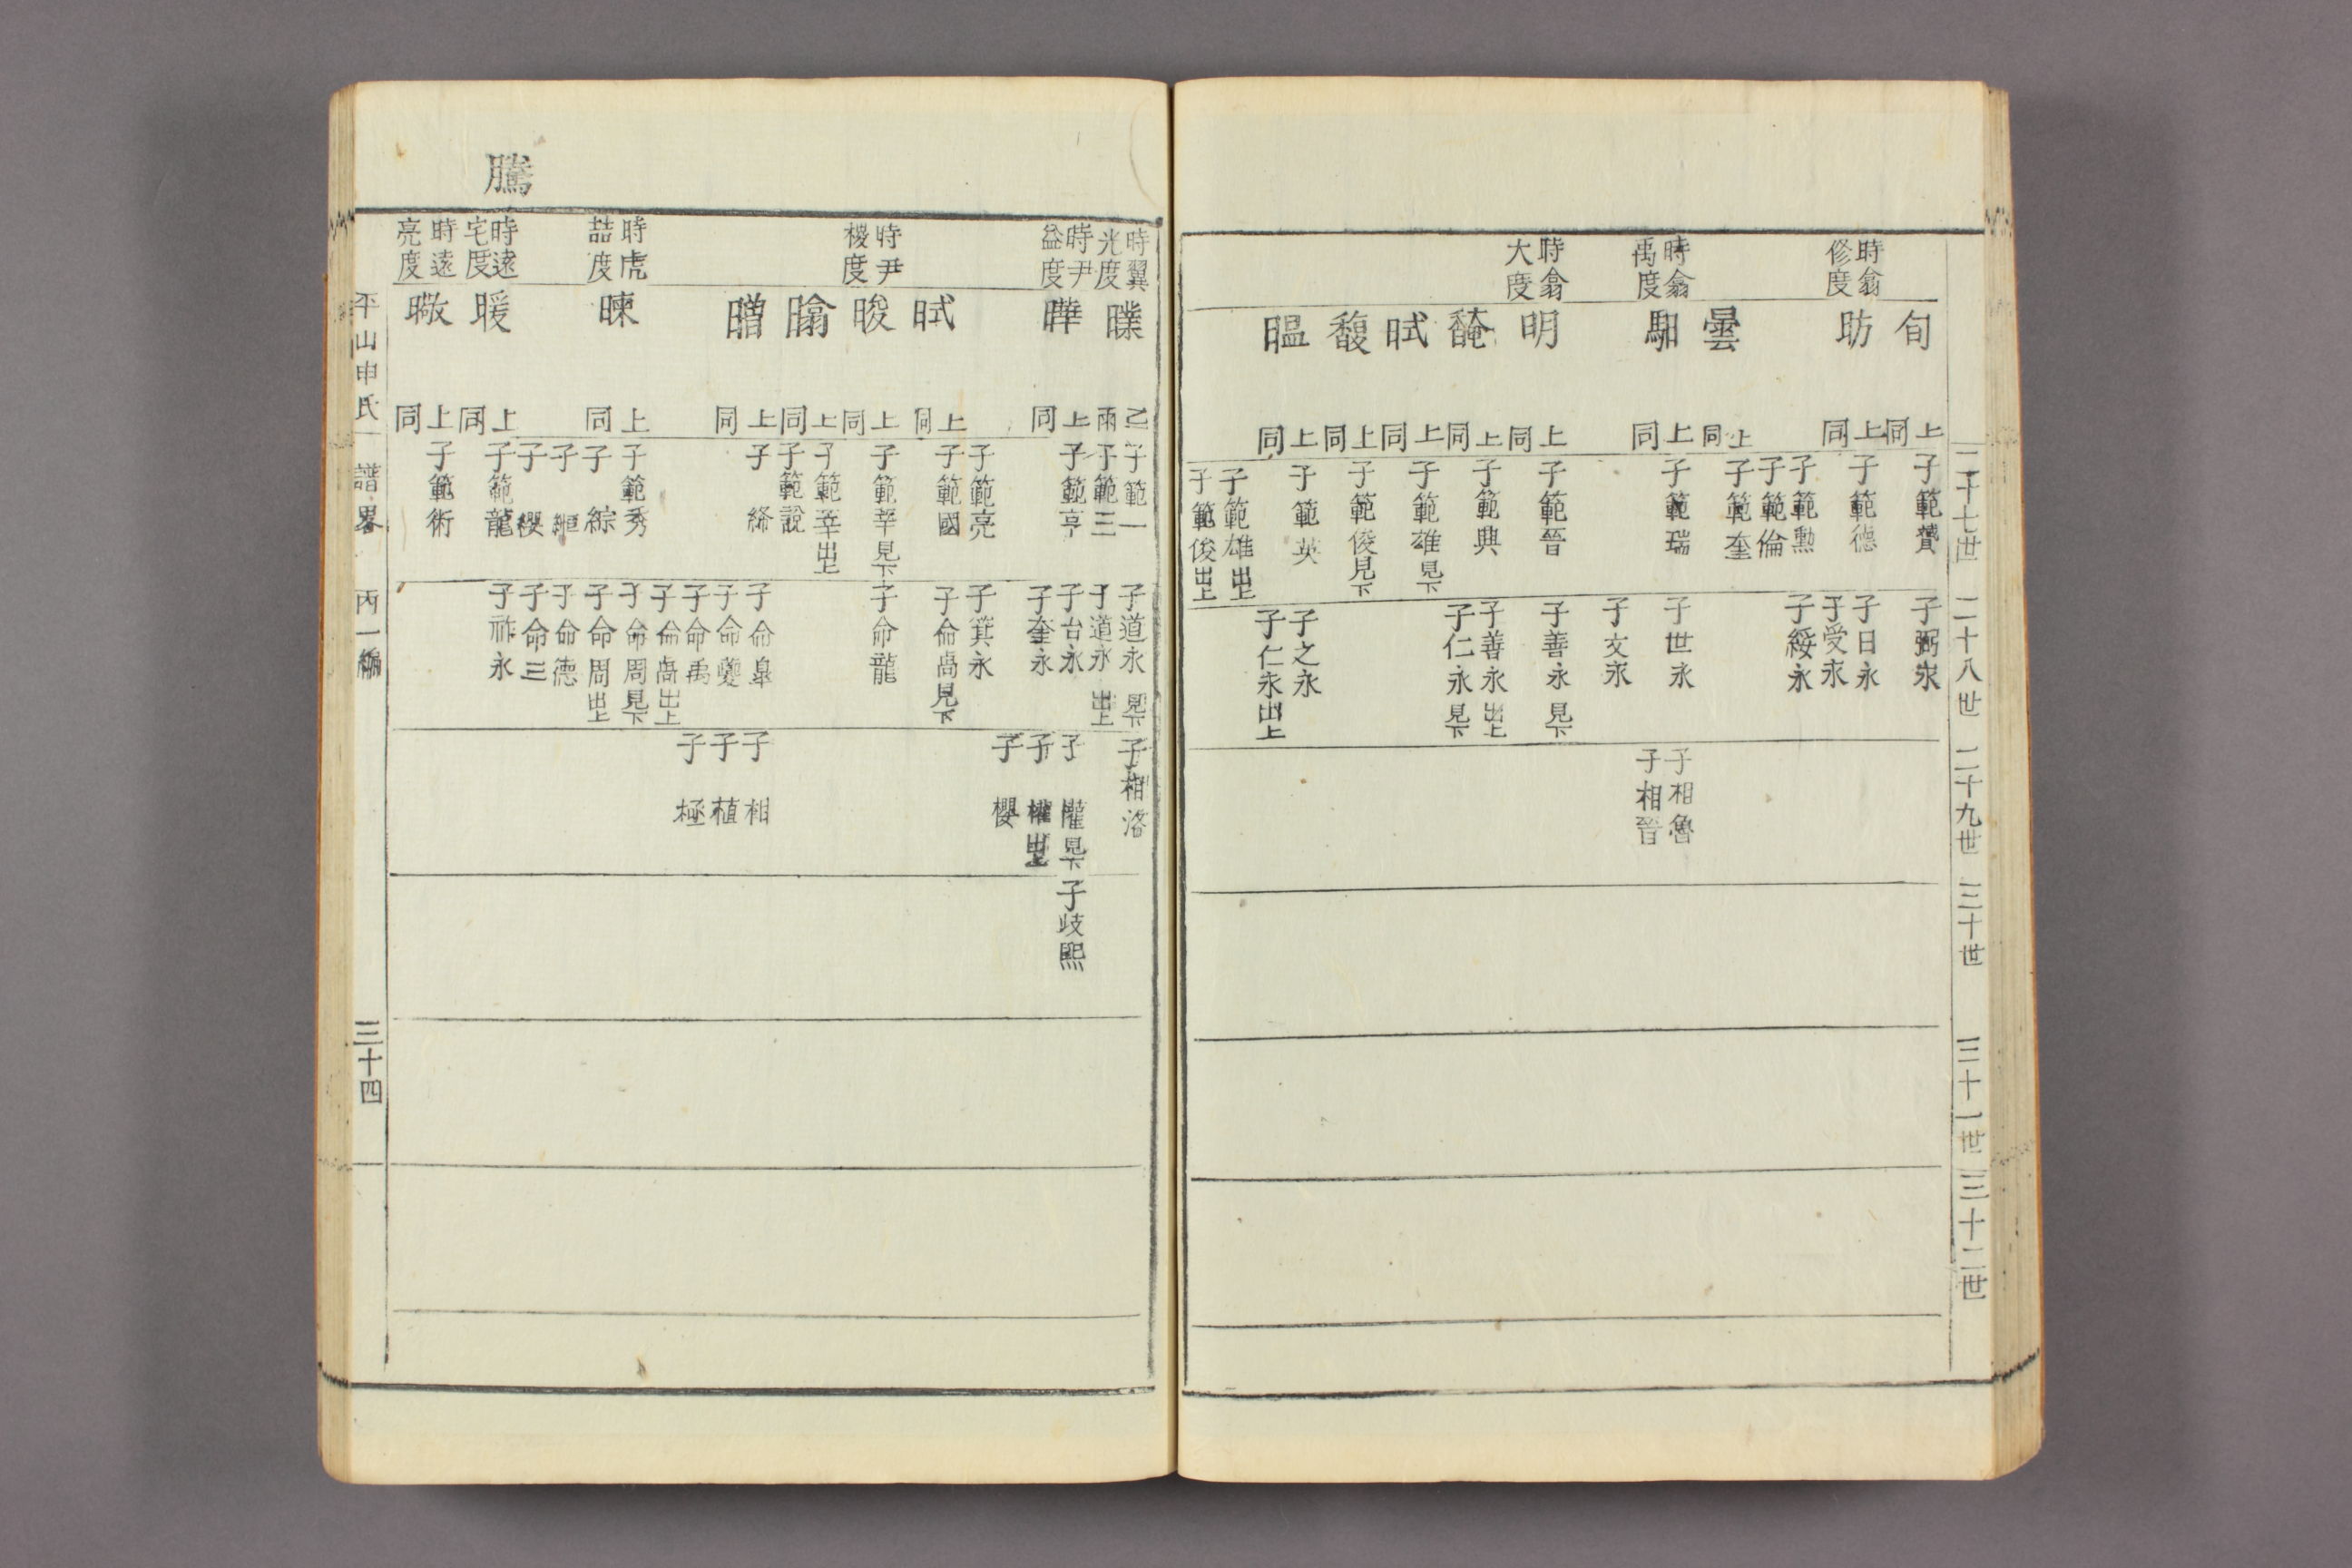 二十七世
二十八世
二十九世
三十世
三十一世
三十二世
旬
同上
子範贊
子弼永
時翕
修度
昉
同上
子範德
子日永
子受永
子範勲
子綏永
子範倫
子範奎
曇
同上
時翕
禹度
馹
同上
子範瑞
子世永
子相魯
子相晉
子文永
時翕
大度
明
同上
子範晉
子善永 見下
馣
同上
子範興
子善永 出上
子仁永 見下
昽
同上
子範雄見下
馥
同上
子範俊見下
昷
同上
子範英
子之永
子仁永出上
子範雄出上
子範俊出上
時翼
光度
㬥
乙
兩
子範一
子道永 見下
子相洛
子範三
子道永 出上
時尹
益度
曄
同上
子範亨
子台永
子 㩲 見下
子歧熙
子奎永
子 㩲 出上
子 櫻
子範亮
子箕永
同上
子範國
子命卨見下
時尹
稷度
晙
同上
子範莘見下
子命龍
子範莘出上
同上
子範說
同上
子 絺
子命皐
子 相
子命夔
子 植
子命禹
子 極
子命卨出上
時虎
喆度
暕
同上
子範秀
子命周見下
子 綜
子命周出上
子 縆
子命德
子 纓
子命三
時遠
宅度
暖
同上
子範龍
子祚永
時遠
亮度
暾
同上
子範術
騰
平山申氏
譜畧
丙一編
三十四